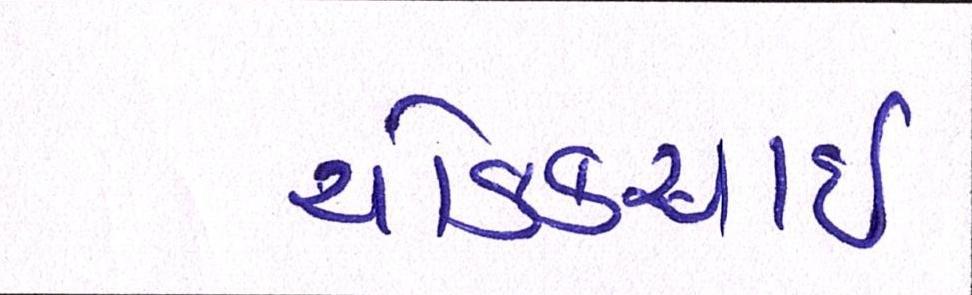 ચોક્કસાઈ